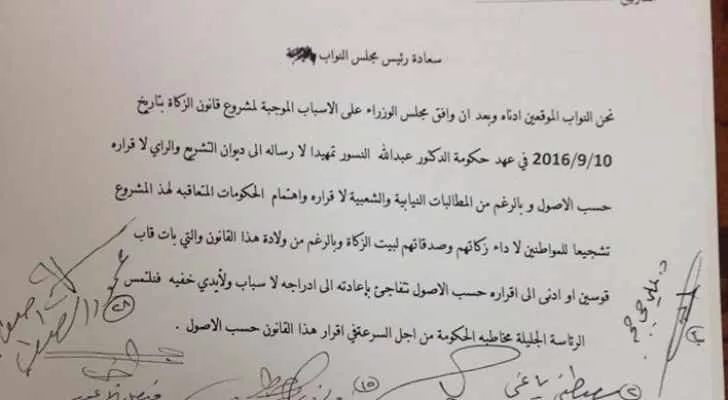 سعادة رئيس مجلس النواب
نحن النواب الموقعين ادناه وبعد ان وافق مجلس الوزراء على الاسباب الموجبة لمشروع قانون الزكاة بتاريخ
2016/9/10 في عهد حكومة الدكتور عبدالله النسور تمهيدا لا رساله الى ديوان التشريع والراي لا قراره
حسب الاصول و بالرغم من المطالبات النيابية والشعبية لا قراره واهتمام الحكومات المتعاقبه لهذ المشروع
تشجيعا للمواطنين لا داء زكاتهم وصدقاتهم لبيت الزكاة وبالرغم من ولادة هذا القانون والتي بات قاب
قوسين او ادنى الى اقراره حسب الاصول نتفاجئ بإعادته الى ادراجه لا سباب ولأيدي خفيه فنلتمس
الرئاسة الجليلة مخاطبه الحكومة من اجل السرعةفي اقرار هذا القانون حسب الاصول .
مصطفى ياغي